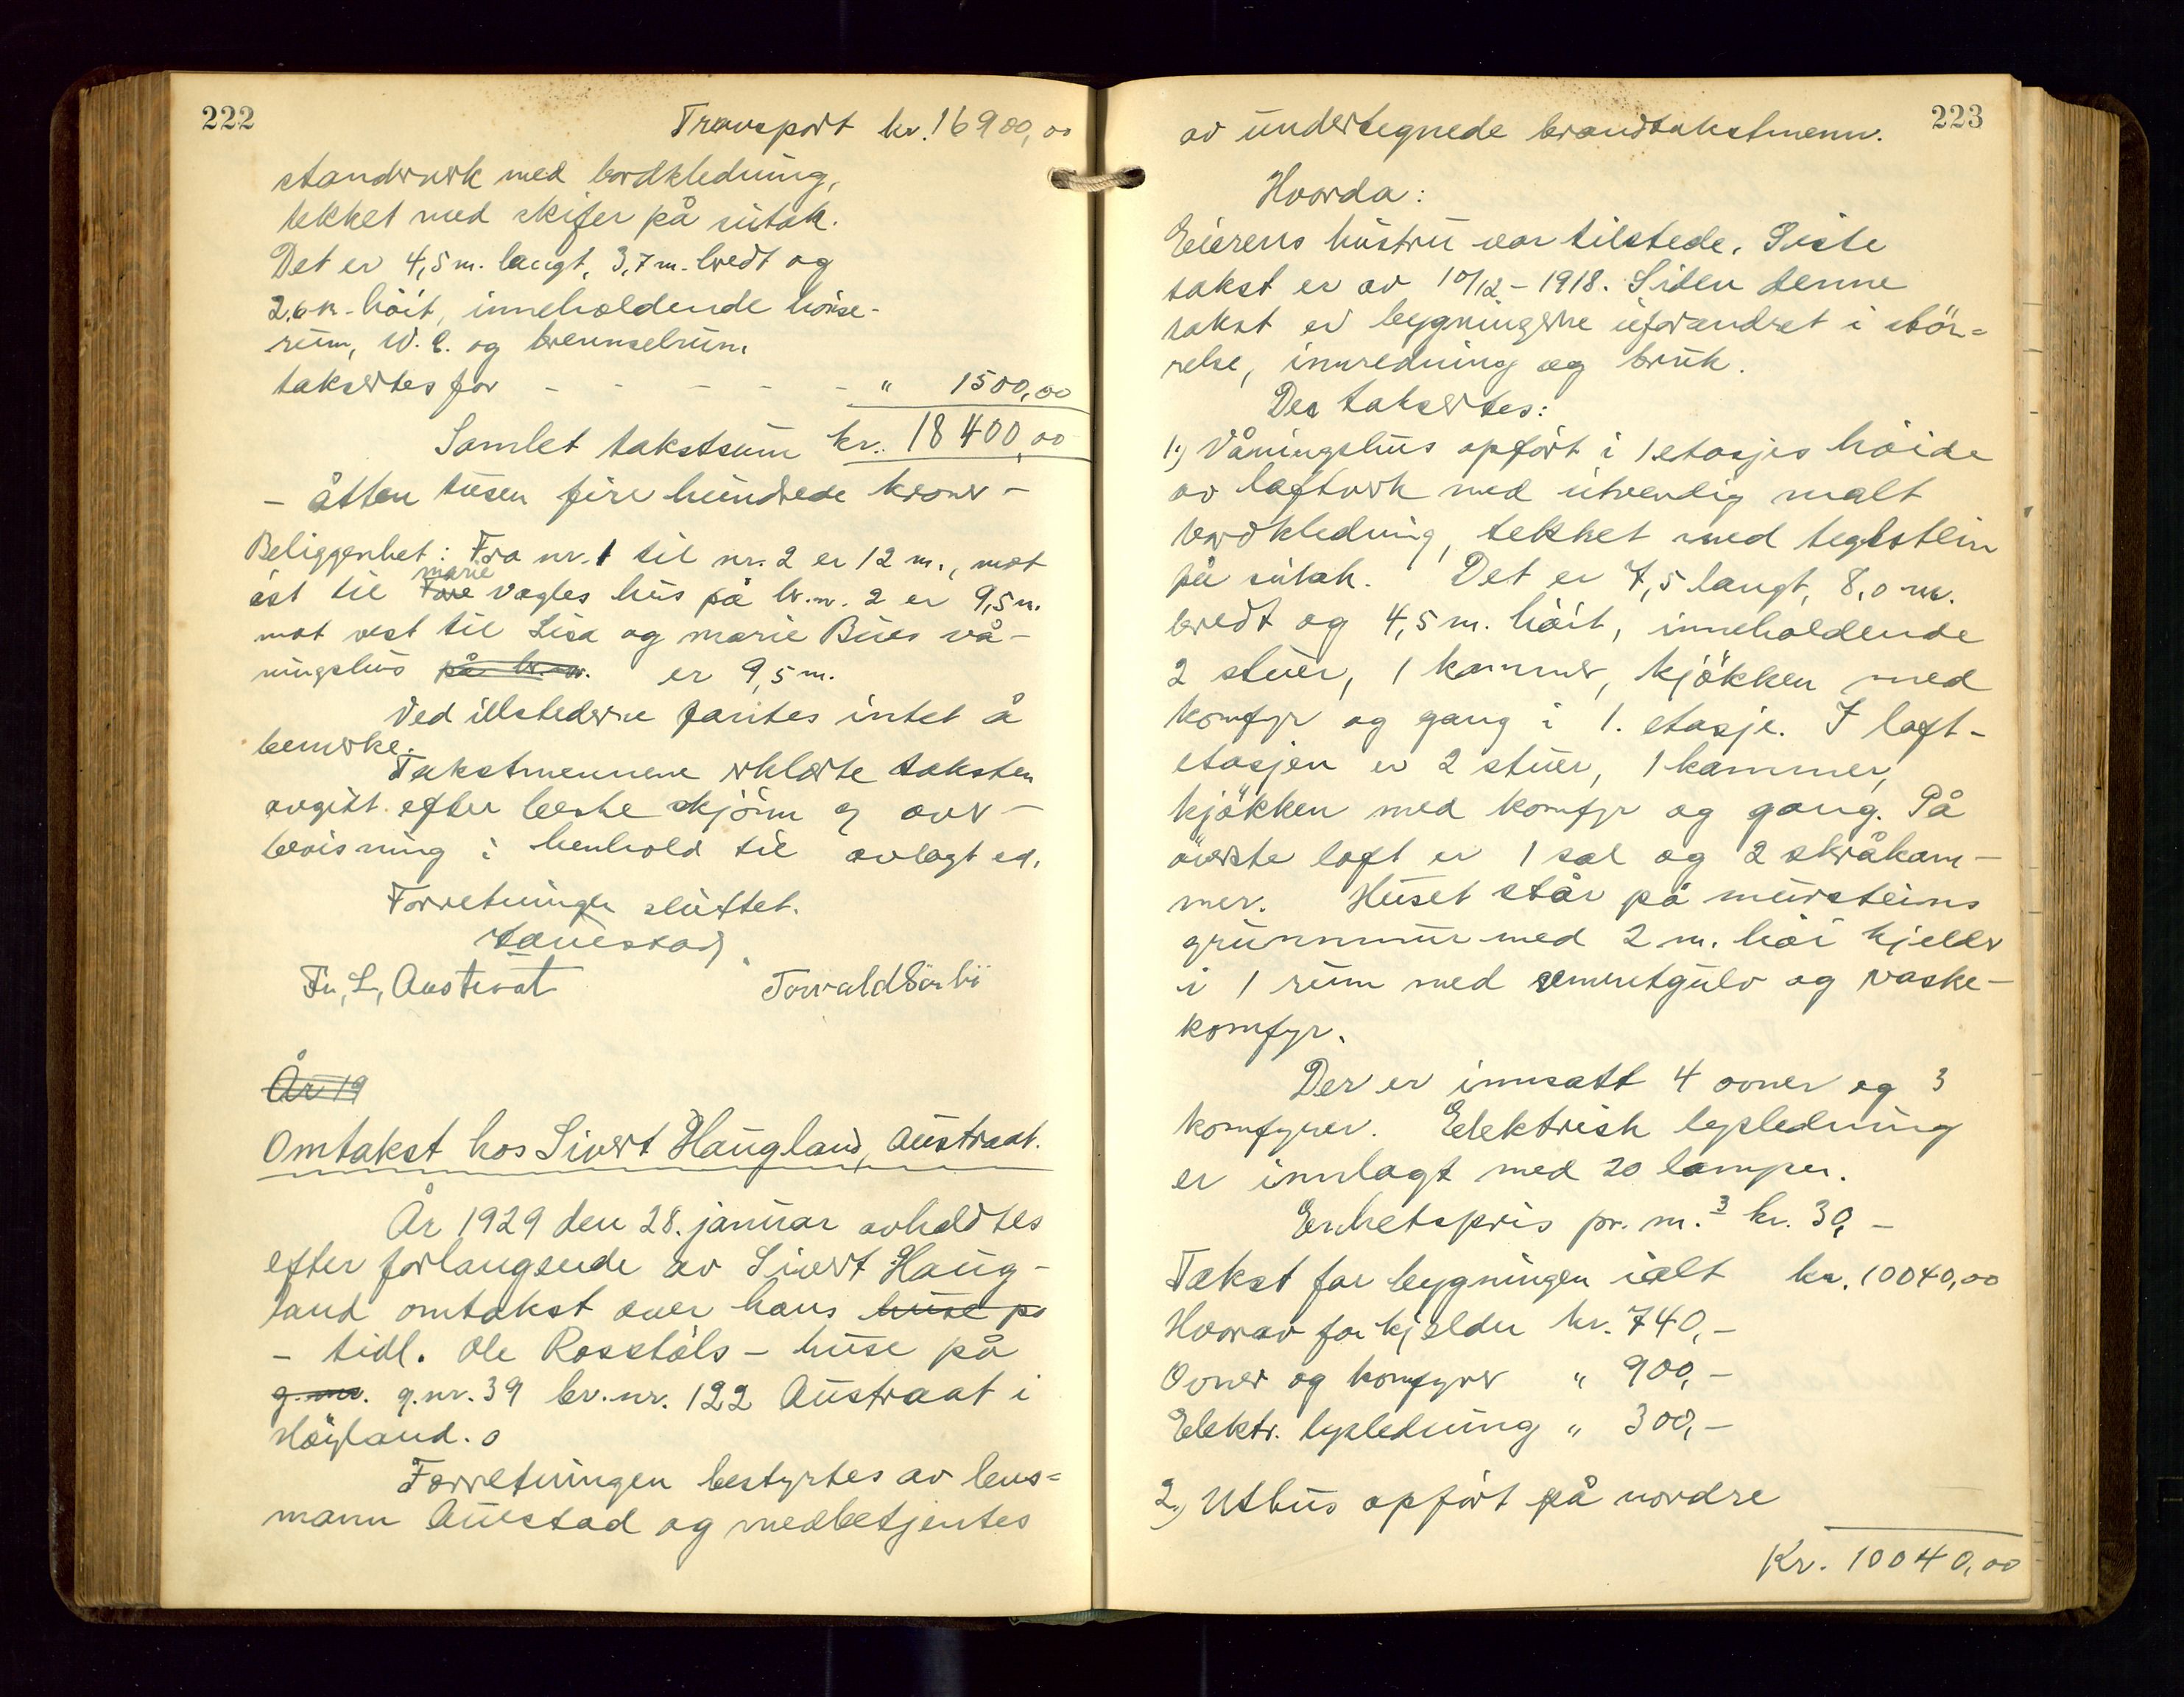 222
Transport kr. 16900,00
standverk med bordkledning,
tekket med skifer på sutak.
Det er 4,5 m. langt, 3,7 m. bredt og
2,6 m. høit, inneholdende hønse-
rum, W.C. og brennselrum
taksertes for - - - - - " 1500,00
Samlet takstsum kr. 18400,00
- åtten tusen fire hundrede kroner -
Beliggenhet: Fra nr. 1 til nr. 2 er 12 m., mot
øst til Tore marie Vagles hus på br.nr. 2 er 9,5 m.
mot vest til Lisa og marie Bues vå-
ningshus på br. nr. er 9,5 m.
Ved ildstederne fantes intet å
bemerke.
Takstmennene erklærte taksten
avgitt efter beste skjønn og over-
bevisning i henhold til avlagt ed.
Forretningen sluttet.
Auestad
Fr. L. Austraat Torvald Sørbø
År 19
Omtakst hos Sivert Haugland, Austraat.
År 1929 den 28. januar avholdtes
efter forlangende av Sivert Haug-
land omtakst over hans huse på
- tidl. Ole Rosstøls - huse på
g.nr. g.nr. 39 br.nr. 122 Austraat i
Høyland.
Forretningen bestyrtes av lens=
mann Auestad og medbetjentes
223
av undertegnede brandtakstmenn.
Hvorda:
Eierens hustru var tilstede. Siste
takst er av 10/12-1918. Siden denne
takst er bygningerne uforandret i stør=
relse, innredning og bruk.
Der taksertes:
1.) Våningshus opført i 1 etasjes høide
av laftverk med utvendig malt
bordkledning, tekket med teglstein
på sutak. Det er 7,5 langt, 8,0 m.
bredt og 4,5 m. høit, inneholdende
2 stuer, 1 kammer, kjøkken med
komfyr og gang i 1. etasje. I loft-
etasjen er 2 stuer, 1 kammer,
kjøkken med komfyr og gang. På
øverste loft er 1 sal og 2 skråkam-
mer. Huset står på mursteins
grunnmur med 2 m. høi kjeller
i 1 rum med sementgulv og vaske-
komfyr.
Der er innsatt 4 ovner og 3
komfyrer. Elektrisk lysledning
er innlagt med 20 lamper.
Enhetspris pr. m.³ kr. 30,-
Takst for bygningen ialt kr. 10040,00
Hvorav for kjelder kr. 740,-
Ovner og komfyrer " 900,-
Elektr. lysledning " 300,-
2.) Uthus opført på nordre
Kr. 10040,00